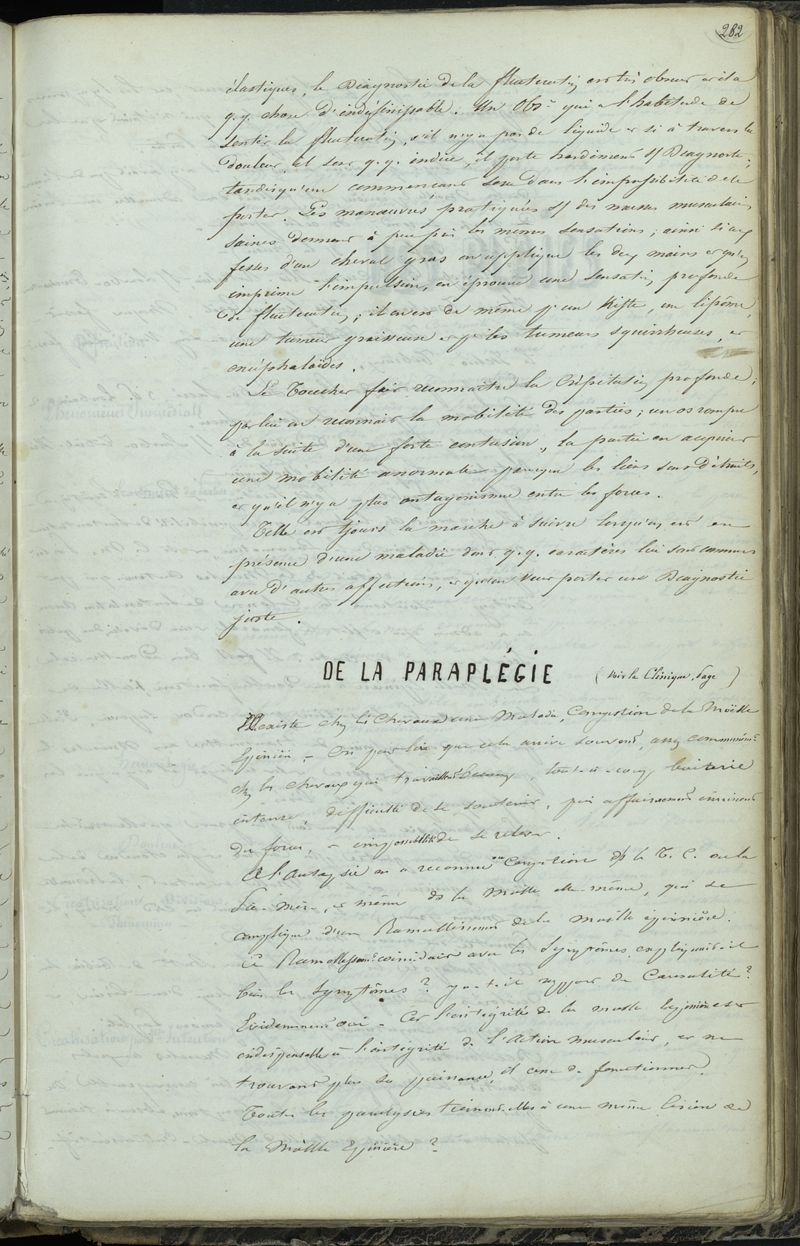 282
élastiques, le Diagnostic de la fluctuation est très obscur et il a
q.q. chose d'indéfinissable. Un Obs.r qui a l'habitude de
sentir la fluctuation, s'il n'y a pas de liquide et si à travers la
douleur, il sent q.q. indice, il porte hardiment s/ Diagnostic,
tandis qu'un commençant sera dans l'impossibilité de le
porter. Les manœuvres pratiquées s/ des masses musculaires
saines donnent à peu près les mêmes sensations; ainsi si aux
fesses d'un cheval gras on applique les deux mains et qu'on
imprime l'impulsion, on éprouve une sensation profonde
de fluctuation; il en est de même p. un kiste, un lipôme,
une tumeur graisseuse et p. les tumeurs squirrheuses, et
encéphaloïdes.
Le Toucher fait reconnaître la Crépitation profonde;
par lui on reconnait la mobilité des parties; un os rompu
à la suite d'une forte contusion, la partie en acquiert
une mobilité anormale parceque les liens sont détruits,
et qu'il n'y a plus antagonisme entre les forces.
Telle est tjours la marche à suivre lorsqu'on est en
présence d'une maladie dont q.q. caractères lui sont communs
avec d'autres affections, et qu'on veut porter un Diagnostic
juste.
DE LA PARAPLÉGIE (voir la Clinique, page )
Il existe chez les Chevaux une Maladie, Congestion de la Moëlle
Épinière. On peut dire que cela arrive souvent, assez communément
chez les chevaux qui travaillent beaucoup, tout-à-coup boiterie
intense, difficulté de se soutenir, puis affaissement
de forces, et impossibilité de se relever.
A l'autopsie on a reconnu une Congestion de la T. C. ou la
Pie-mère, et même de la Moëlle elle-même, qui se
complique d'un Ramollissement de la moëlle épinière.
Ce Ramollissement coïncidait avec les Symptômes, expliquait-il
bien les Symptômes? y a-t-il rapport de Causalité?
Évidemment oui. Car l'intégrité de la moëlle épinière est
indispensable à l'intégrité de l'Action musculaire, et ne
trouvant plus sa puissance, il cesse de fonctionner.
Toutes les paralysies tiennent-elles à une même lésion de
la Moëlle Épinière?